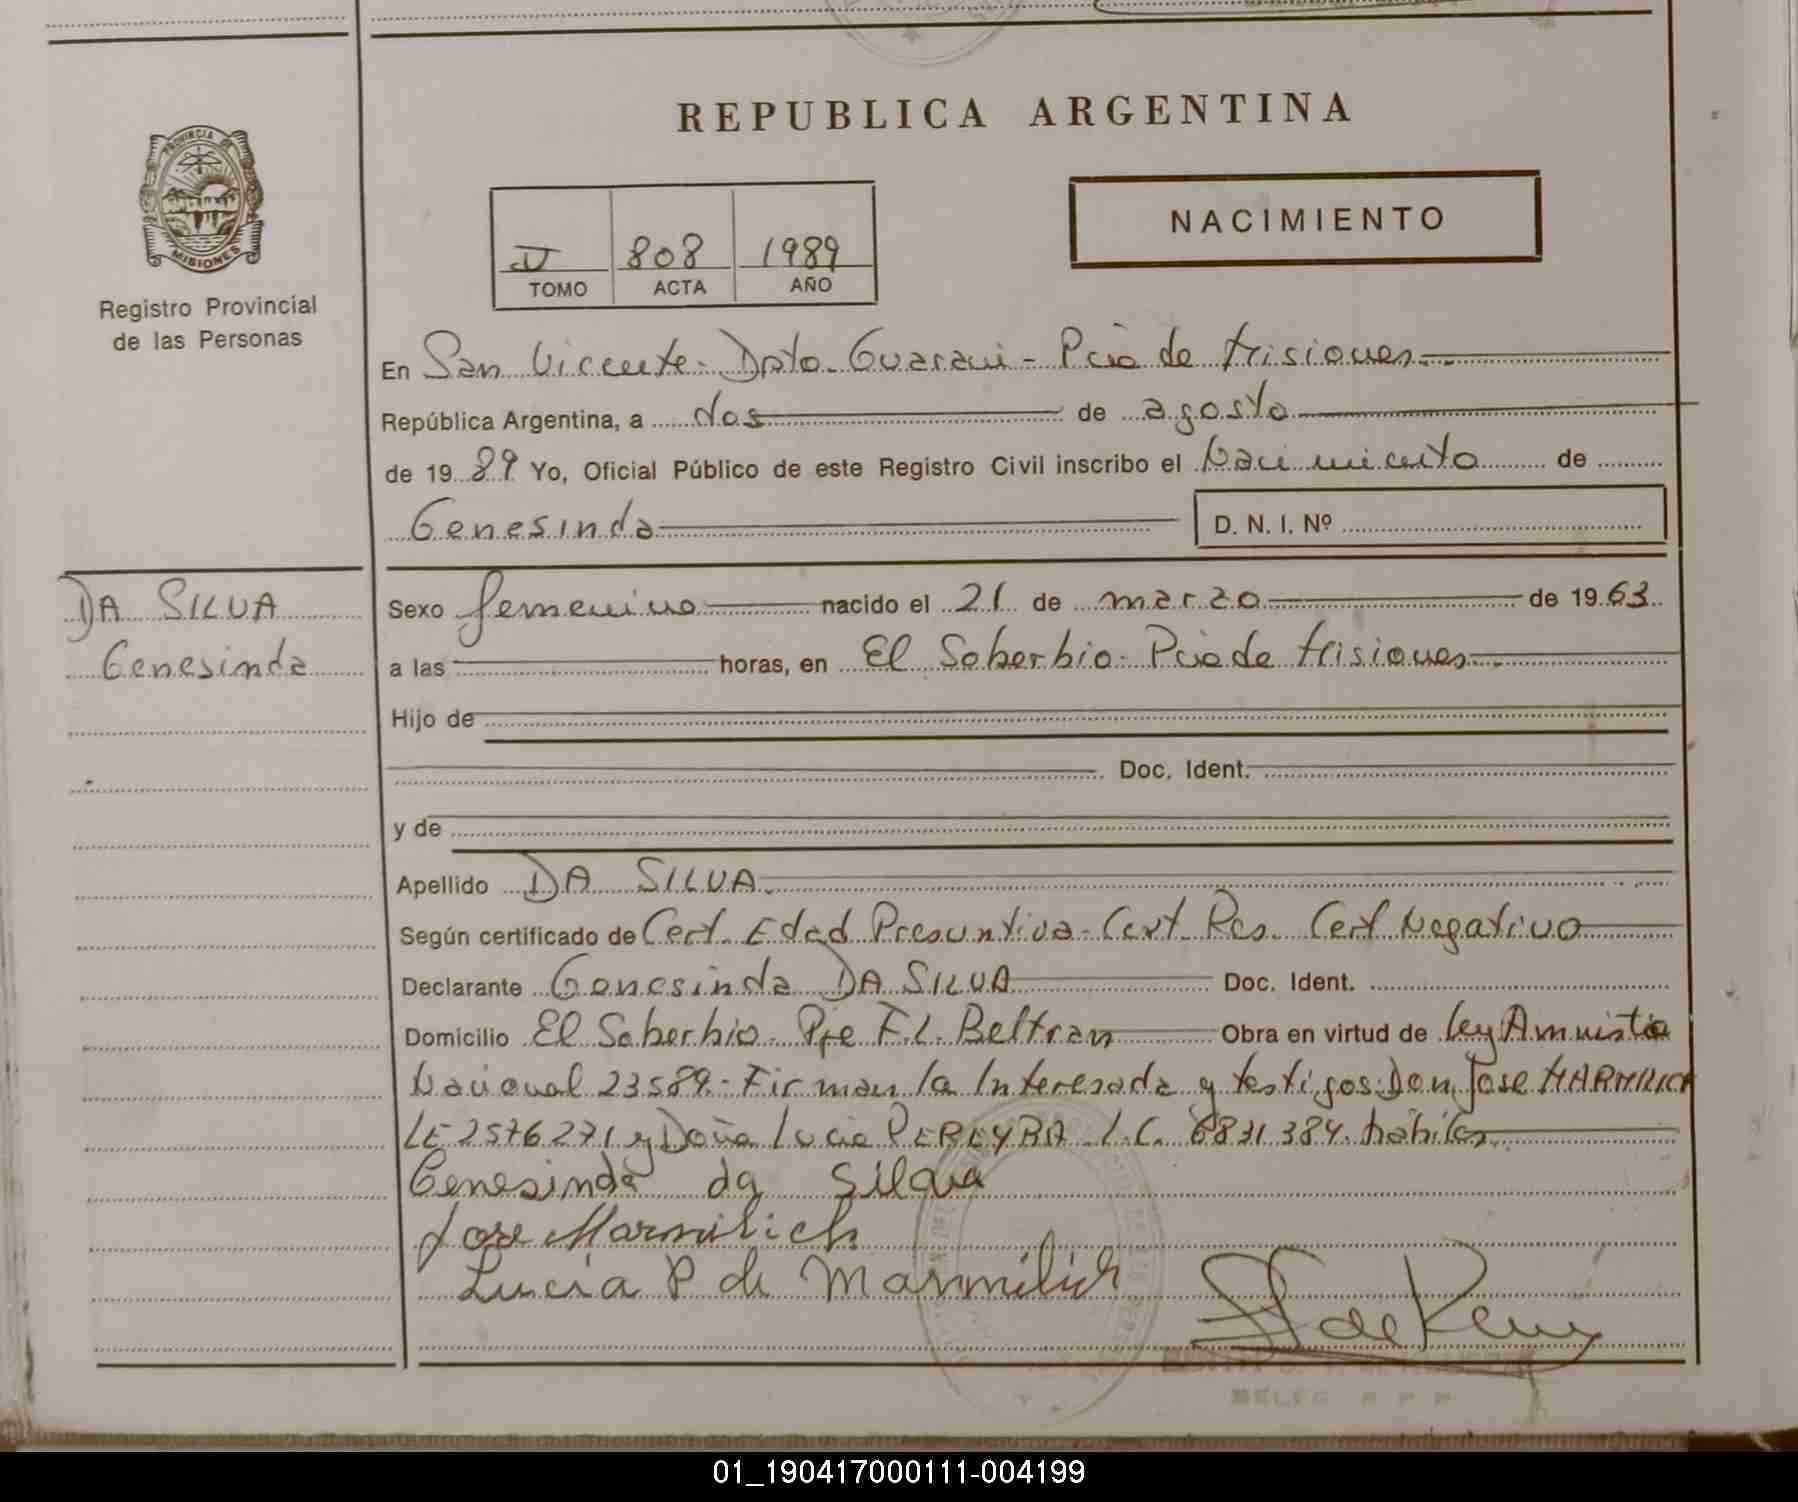 REPUBLICA ARGENTINA
PROVINCIA DE
MISIONES
Registro Provincial
de las Personas
NACIMIENTO
II 808 1989
TOMO ACTA AÑO
En San Vicente - Dpto. Guarani - Pcia de Misiones
República Argentina, a dos de agosto
de 1989 Yo, Oficial Público de este Registro Civil inscribo el Nacimiento de
Genesinda D. N. I. Nº
DA SILVA
Genesinda
Sexo femenino nacido el 21 de marzo de 1963
a las horas, en El Soberbio - Pcia de Misiones
Hijo de
Doc. Ident.
y de
Apellido DA SILVA
Según certificado de Cert. Edad Presuntiva - Cert. Res. Cert Negativo
Declarante Genesinda DA SILVA Doc. Ident.
Domicilio El Soberbio F.L. Beltran Obra en virtud de ley Amnistia
Nacional 23589.- Firman la Interesada y testigos: Don Jose MARMILICH
LE 2576271 y Doña Lucia PEREYRA L.C. 6831384. hábiles
Genesinda da Silva
Jose Marmilich
Lucia P de Marmilich
01_190417000111-004199